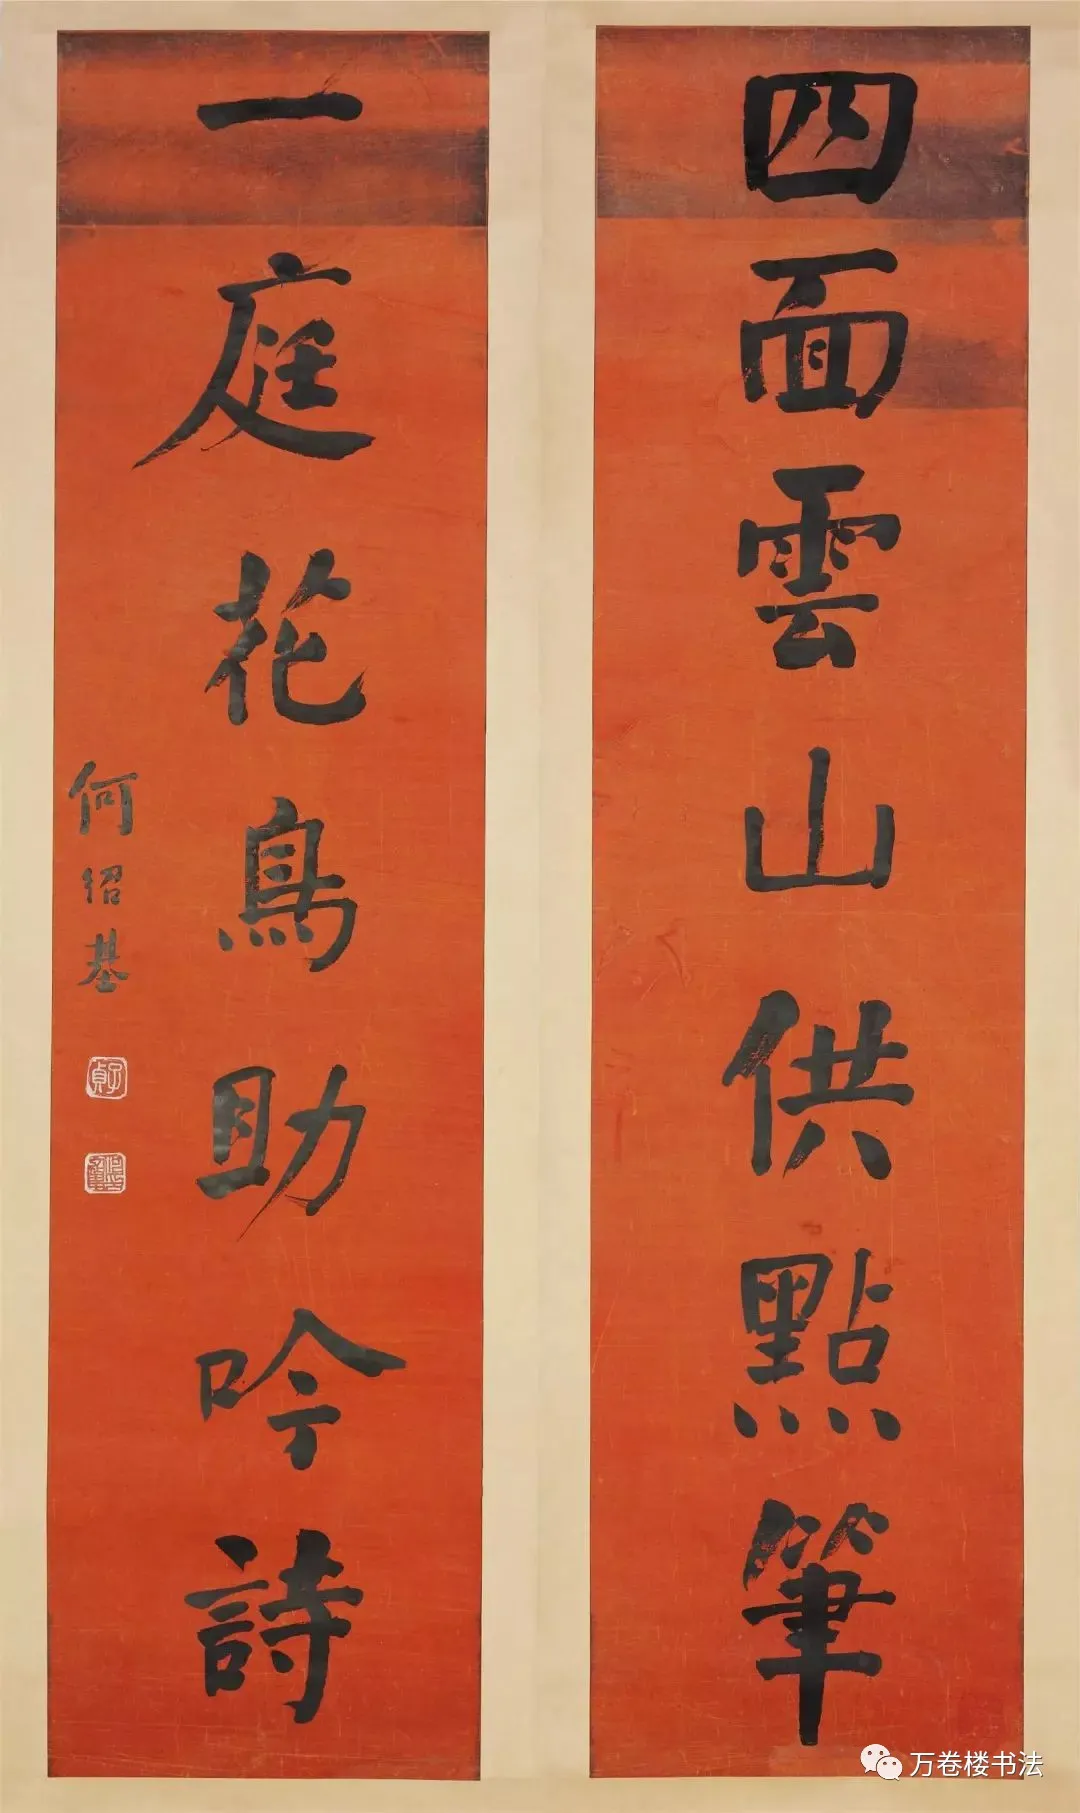 四面雲山供點筆
一庭花鳥助吟詩
何紹基
子貞
万卷楼书法